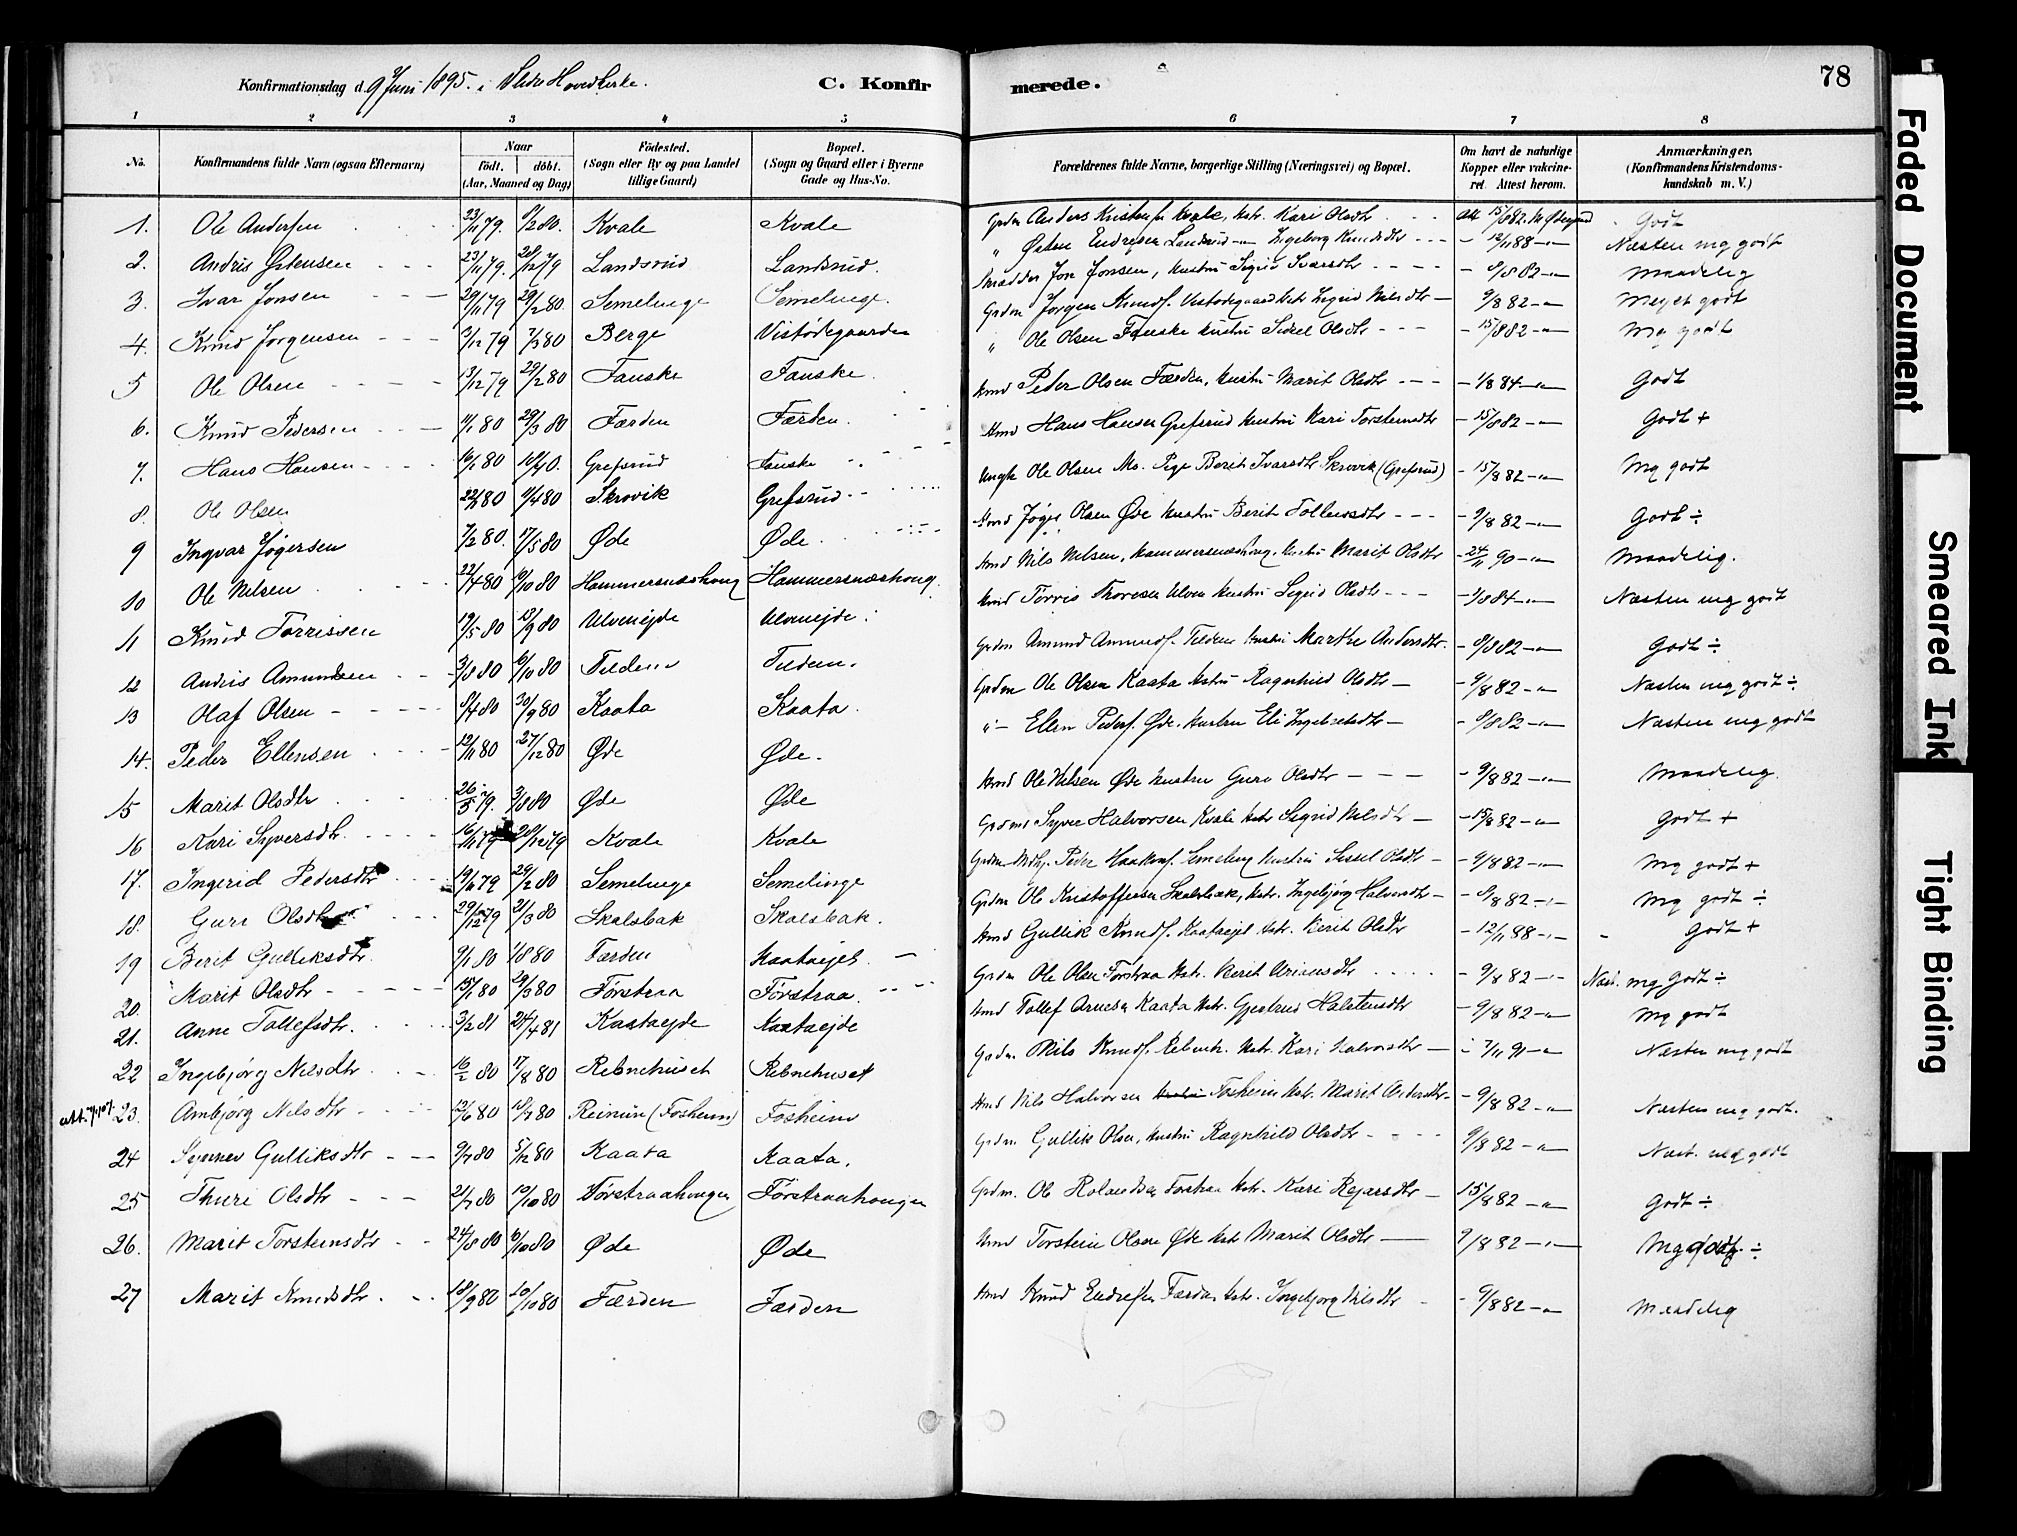 Konfirmationsdag d. 9 Juni 1895. i Slidre Hovedkirke. C. Konfirmerede. 78
1 2 3 4 5 6 7 8
No. Konfirmandens fulde Navn (ogsaa Efternavn) Naar født. døbt. (Aar, Maaned og Dag) Födested. (Sogn eller By og paa Landet tillige Gaard) Bopæl. (Sogn og Gaard eller i Byerne Gade og Hus-No. Forældrenes fulde Navne, borgerlige Stilling (Næringsvei) og Bopæl. Om havt de naturlige Kopper eller vakcineret. Attest herom. Anmærkninger. (Konfirmandens Kristendomskundskab m. V.)
1. Ole Andersen 23/11 79. 8/2 80. Kvale Kvale Grdm Anders Kristens. Kvale, Hstr. Kari Olsdtr Att 15/8 82. Godt
2. Andris Østensen 23/11 79. 28/12 79 Landsrud Landsrud. " Østen Endresen Landsrud Ingeborg Knudsdtr - 12/11 88 -"- Næsten mg godt
3. Ivar Jonsen 29/11 79 29/2 80. Semelenge Semelenge. Skrædder Jon Jonsen, Hustru Sigrid Ivarsdtr - 9/8 82 -"- Maadelig
4. Knud Jørgensen 3/12 79 7/3 80 Berge Vistødegaarden Grdm Jørgen Knuds. Vistødegaard Hstr Sigrid Nilsdtr 9/8 82 -"- Meget godt
5 Ole Olsen 13/12 79 29/2 80 Fauske Fauske. " Ole Olsen Fauske Hustru Sidsel Olsdtr - 15/8 82 -"- Mg godt
6. Knud Pedersen 11/1 80 29/3 80 Færden Færden. Hmd Peder Olsen Færden, Hustru Marit Olsdtr - 1/8 84 -"- Godt
7. Hans Hansen 16/1 80 Grefsrud Fauske Hmd Hans Hansen Grefsrud Hustru Kari Torsteinsdtr - 15/8 82 -"- Godt +
8. Ole Olsen 22/2 80 11/4 80 Skrovik Grefsrud Ungk Ole Olsen Mo. Pige Berit Ivarsdtr Skrovik (Grefsrud) - 15/8 82 -"- Mg godt
9 Ingvar Jøgersen 7/2 80. 17/5 80 Øde Øde. Hmd Jøger Olsen Øde Hustru Berit Tollevsdtr - 9/8 82 -"- Godt ÷
10 Ole Nilsen 22/4 80 10/10 80 Hammersnæshong Hammersnæshong. Hmd Nils Nilsen, Hammersnæshong, Hustru Marit Olsdtr - 24/11 90 -"- Maadelig.
11 Knud Tørrissen 19/5 80 13/9 80 Ulvenejde Ulvenejde. Hmd Tørris Thoresen Ulven Hustru Sigrid Olsdtr - 1/8 84 -"- Næsten mg godt
12 Andris Amundsen 3/8 80 6/10 80 Tildenn Tildem. Grdm Amund Amunds. Tildem Hustru Marthe Andersdtr. - 9/8 82 -"- Godt ÷
13 Olaf Olsen 8/4 80 30/9 80 Kaata Kaata. Grdm Ole Olsen Kaata Hstru Ragnhild Olsdtr - 9/8 82 -"- Næsten mg godt ÷
14. Peder Ellensen 12/11 80 27/12 80 Øde Øde. " Ellen Peders. Øde, Hustru Eli Ingebretsdtr - 9/8 82 -"- Næsten mg godt
15 Marit Olsdtr 26/5 79. 3/8 80 Øde Øde Hmd Ole Nilsen Øde Hustru Guri Olsdtr - 9/8 82 -"- Maadelig
16 Kari Syversdtr. 16/11 79 28/12 79 Kvale Kvale Grdm Syver Halvorsen Kvale Hstr Sigrid Nilsdtr - 15/8 82 -"- Godt +
17. Ingerid Pedersdtr 19/11 79 29/2 80 Semelenge Semelinge Peder Haakons. Semeleng Hustru Sissel Olsdtr - 9/8 82 -"- Mg godt +
18. Guri Olsdtr 29/12 79 21/3 80 Skalsbak Skalsbak. Grdm Ole Kristoffersen Skalsbak, Hstr. Ingebjørg Halvorsdtr - 9/8 82 -"- Mg godt ÷
19 Berit Gulliksdtr. 9/1 80 1/8 80 Færden Kaataejet Hmd Gullik Knuds. Kaataejet Hstr. Berit Olsdtr - 12/11 88 -"- Godt +
20. Marit Olsdtr 15/1 80 29/3 80 Førstraa Førstraa. Grdm Ole Olsen Førstraa Hstr. Berit - 9/8 82 -"- Næst. mg Godt ÷
21. Anne Tollefsdtr. 3/2 81 24/4 81 Kaataejde Kaataejde Hmd Tollef Arnesen Kaata Hstr. Gjertrud Halstensdtr - 9/8 82 -"- Mg godt
22 Ingebjørg Nilsdtr 16/2 80 17/8 80 Rebnehuset Rebnehuset Grdm. Nils Knuds. Rebneh. Hstr. Kari Halvorsdtr 7/11 91 -"- Næsten mg godt
23. Ambjørg Nilsdtr 12/6 80 18/7 80 Reinun (Fosheim) Fosheim Hmd Nils Halvorsen Fosheim Hstr. Marit Andersdtr - 9/8 82 -"- Næsten mg godt.
24 Gulliksdtr 9/7 80 5/12 80 Kaata Kaata. Grdm. Gullik Olsen, Hustru Ragnhild Olsdtr 9/8 82 -"- Næst. meg godt
25 Thuri Olsdtr 21/7 80 10/10 80 Førstraahougen Førstraahougen Grdm. Ole Førstraa Hstr. Kari 15/8 82 -"- Godt ÷
26. Marit Torsteinsdtr 24/8 80 6/10 80 Øde Øde Hmd Torstein Olsen Øde Hstr Marit Olsdtr 9/8 82 -"- Mg godt. ÷
27 Marit Knudsdtr. 18/9 80 10/10 80 Færden Færden Hmd Knud Endresen Færden Hstr. Ingebjørg Nilsdtr - 9/8 82 -"- Maadelig
Faded Document
Smeared Ink
Tight Binding